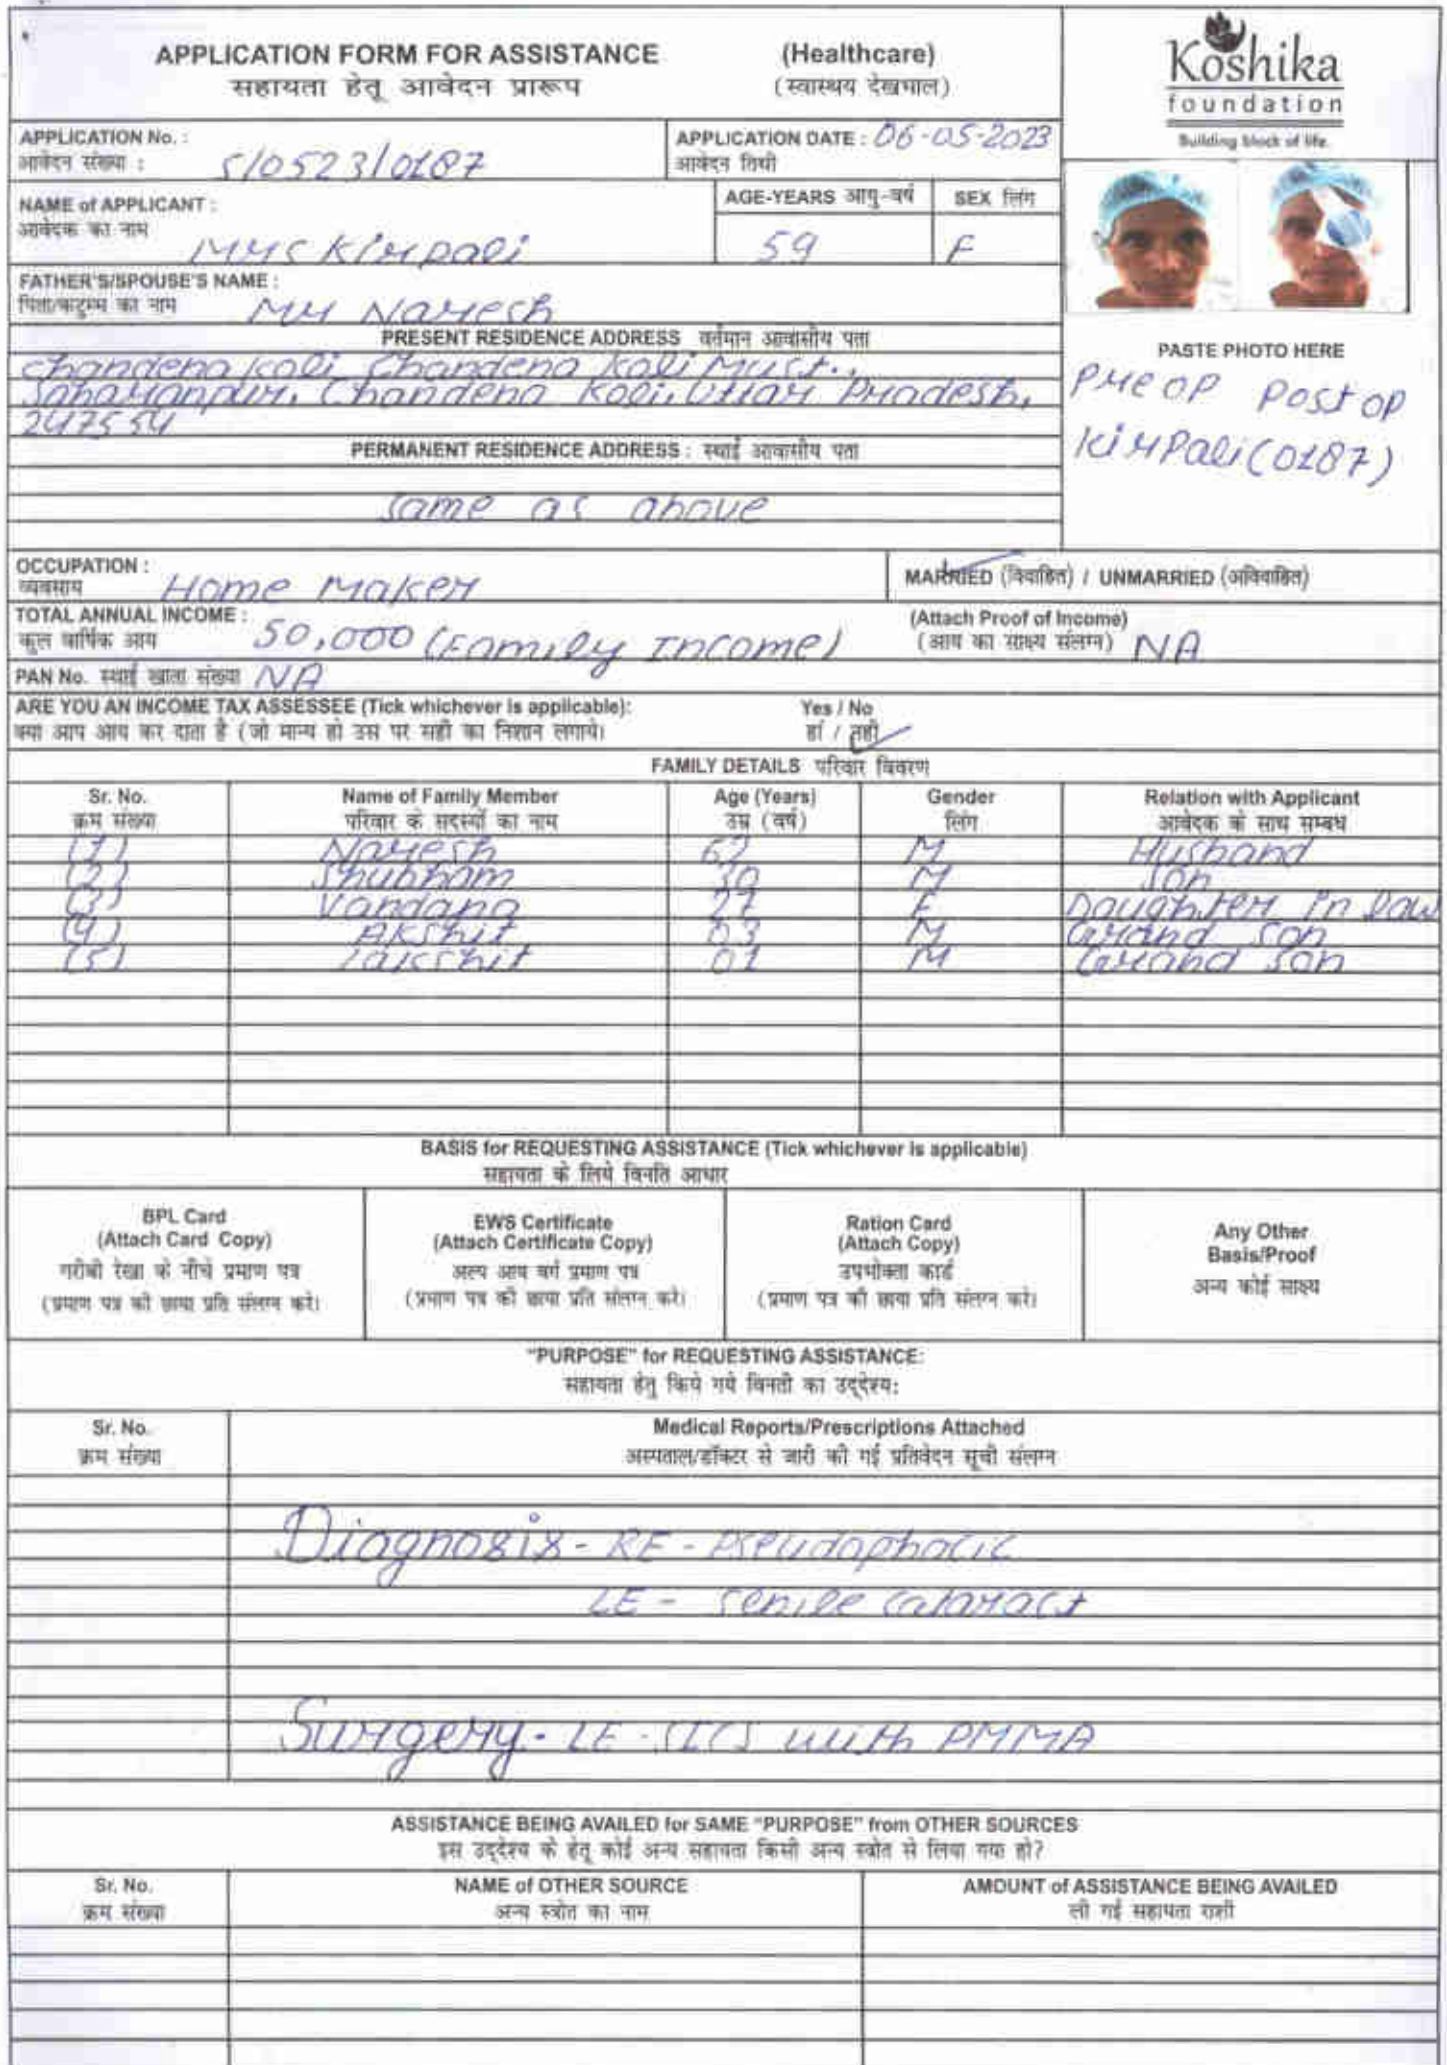 APPLICATION FORM FOR ASSISTANCE (Healthcare)
सहायता हेतू आवेदन प्रारूप (स्वास्थय देखभाल)
Koshika
foundation
Building block of life.
APPLICATION No. :
आवेदन संख्या : S/0523/0187
APPLICATION DATE : 06-05-2023
आवेदन तिथी
NAME of APPLICANT :
आवेदक का नाम Mrs Kirpali
AGE-YEARS आयु-वर्ष 59
SEX लिंग F
FATHER'S/SPOUSE'S NAME :
पिता/कटुम्ब का नाम Mr Naresh
PRESENT RESIDENCE ADDRESS वर्तमान आवासीय पता
Chandena Koli, Chandena Koli Must.,
Saharanpur, Chandena Koli, Uttar Pradesh,
247554
PERMANENT RESIDENCE ADDRESS : स्थाई आवासीय पता
same as above
PASTE PHOTO HERE
Pre OP Post OP
Kirpali (0187)
OCCUPATION :
व्यवसाय Home Maker
MARRIED (विवाहित) / UNMARRIED (अविवाहित)
TOTAL ANNUAL INCOME :
कुल वार्षिक आय 50,000 (Family Income)
(Attach Proof of Income)
(आय का साक्ष्य संलग्न) NA
PAN No. स्थाई खाता संख्या NA
ARE YOU AN INCOME TAX ASSESSEE (Tick whichever is applicable): Yes / No
क्या आप आय कर दाता है (जो मान्य हो उस पर सही का निशान लगाये) हां / नही
FAMILY DETAILS परिवार विवरण
Sr. No. Name of Family Member Age (Years) Gender Relation with Applicant
क्रम संख्या परिवार के सदस्यों का नाम उम्र (वर्ष) लिंग आवेदक के साथ सम्बध
(1) Naresh 62 M Husband
(2) Shubham 30 M Son
(3) Vandana 27 F Daughter in law
(4) Akshit 03 M Grand Son
(5) Lakshit 01 M Grand Son
BASIS for REQUESTING ASSISTANCE (Tick whichever is applicable)
सहायता के लिये विनति आधार
BPL Card
(Attach Card Copy)
गरीबी रेखा के नीचे प्रमाण पत्र
(प्रमाण पत्र की छाया प्रति संलग्न करे)
EWS Certificate
(Attach Certificate Copy)
अल्प आय वर्ग प्रमाण पत्र
(प्रमाण पत्र की छाया प्रति संलग्न करे)
Ration Card
(Attach Copy)
उपभोक्ता कार्ड
(प्रमाण पत्र की छाया प्रति संलग्न करे)
Any Other
Basis/Proof
अन्य कोई साक्ष्य
"PURPOSE" for REQUESTING ASSISTANCE:
सहायता हेतु किये गये विनती का उद्देश्य:
Sr. No. Medical Reports/Prescriptions Attached
क्रम संख्या अस्पताल/डॉक्टर से जारी की गई प्रतिवेदन सूची संलग्न
Diagnosis - RE - Pseudophacic
LE - Senile cataract
Surgery - LE - SICS with PMMA
ASSISTANCE BEING AVAILED for SAME "PURPOSE" from OTHER SOURCES
इस उद्देश्य के हेतू कोई अन्य सहायता किसी अन्य स्त्रोत से लिया गया हो?
Sr. No. NAME of OTHER SOURCE AMOUNT of ASSISTANCE BEING AVAILED
क्रम संख्या अन्य स्त्रोत का नाम ली गई सहायता राशी